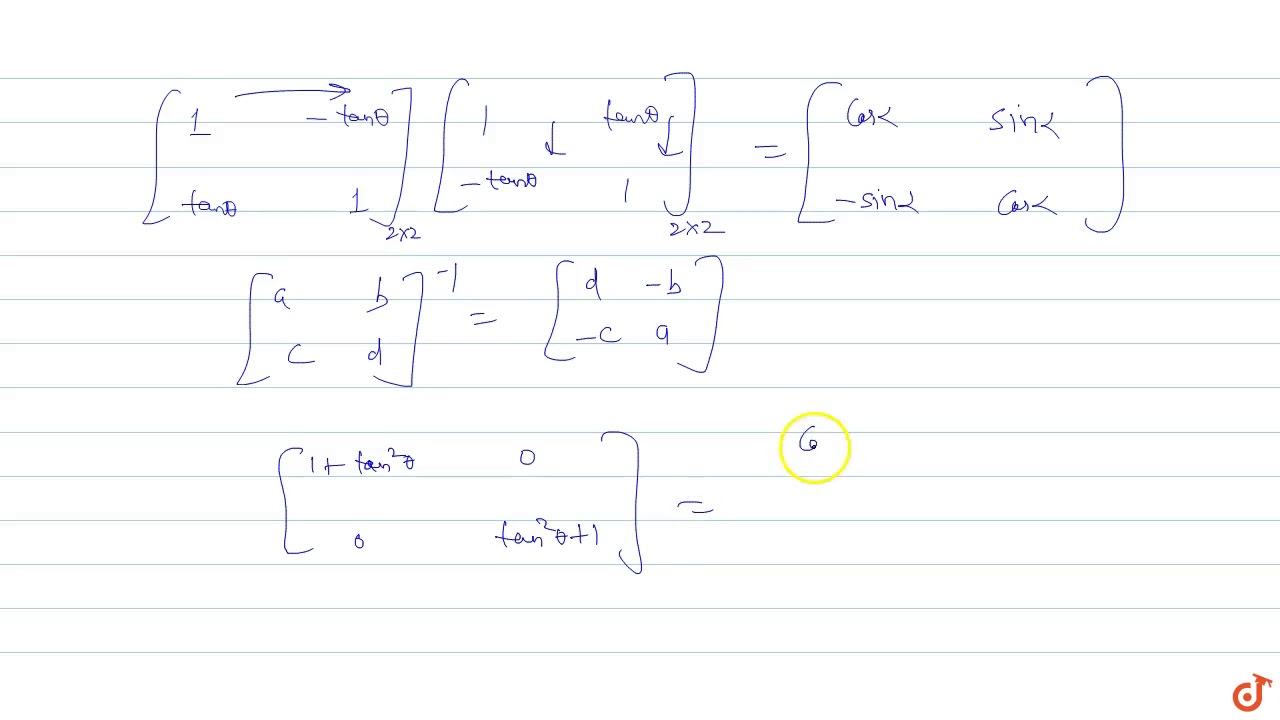 [1 -tanθ tanθ 1]2×2 [1 tanθ -tanθ 1]2×2 = [cosα sinα -sinα cosα]
[a b c d]-1 = [d -b -c a]
[1+tan²θ 0 0 tan²θ+1] = Co